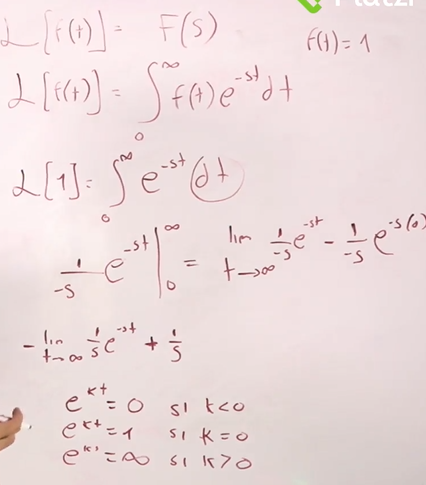 ℒ[f(t)] = F(s) f(t) = 1
ℒ[f(t)] = ∫₀^∞ f(t) e^{-st} dt
ℒ[1] = ∫₀^∞ e^{-st} dt
1/-s e^{-st} |₀^∞ = lim t→∞ 1/-s e^{-st} - 1/-s e^{-s(0)}
- lim t→∞ 1/s e^{-st} + 1/s
e^{kt} = 0 si k<0
e^{kt} = 1 si k=0
= ∞ si k>0